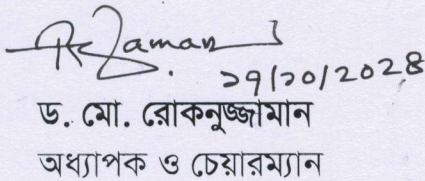 ১৭/১০/২০২৪
ড. মো. রোকনুজ্জামান
অধ্যাপক ও চেয়ারম্যান